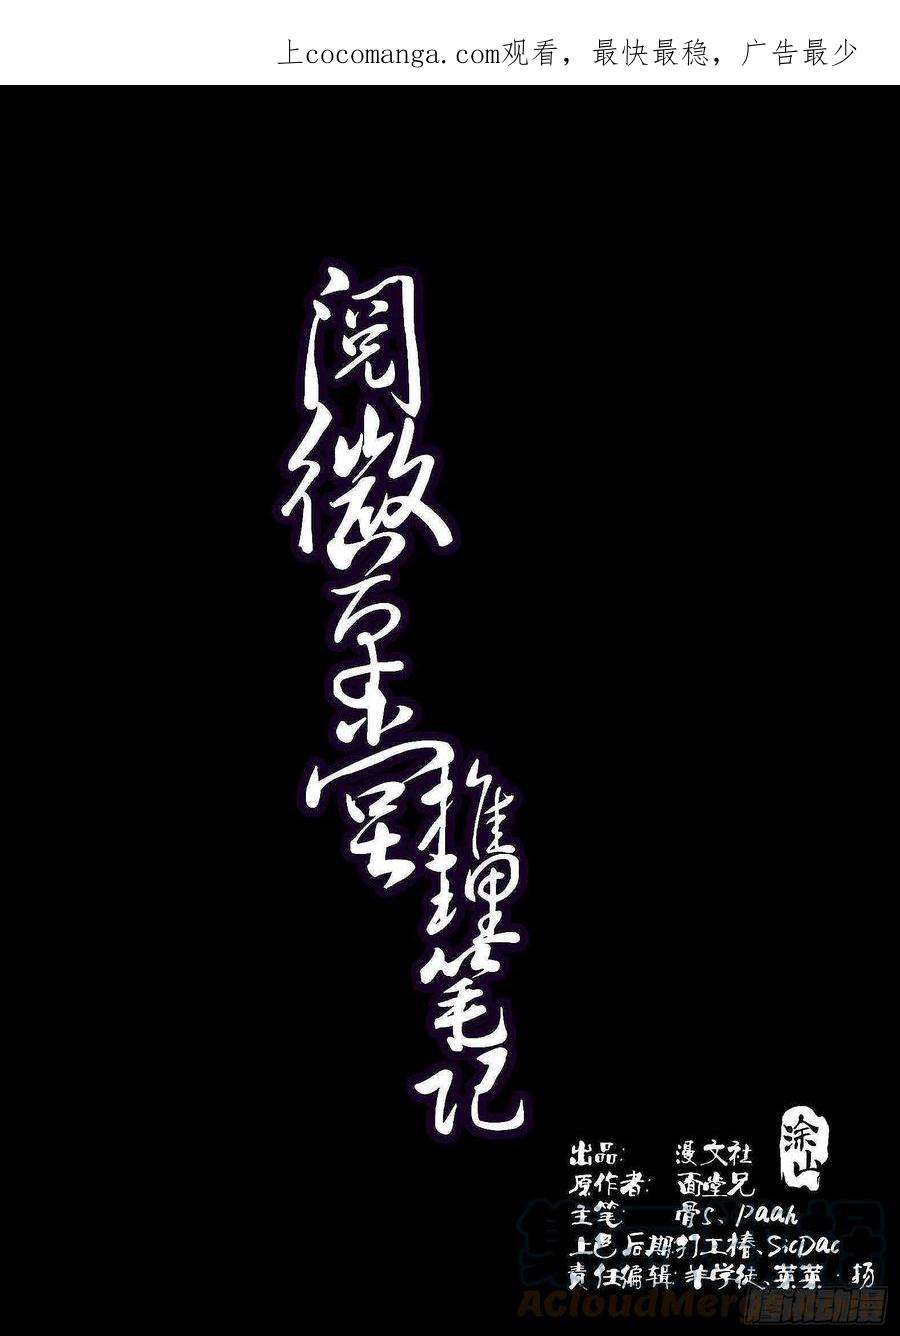 上cocomanga.com观看，最快最稳，广告最少
阅微草堂
推理笔记
涂山
出品: 漫文社
原作者: 面堂兄
主笔: 骨S、paah
上色后期:打工椿、SicDac
責任编辑:羊学徒、菜菜·扬
AcloudMerge
腾讯动漫